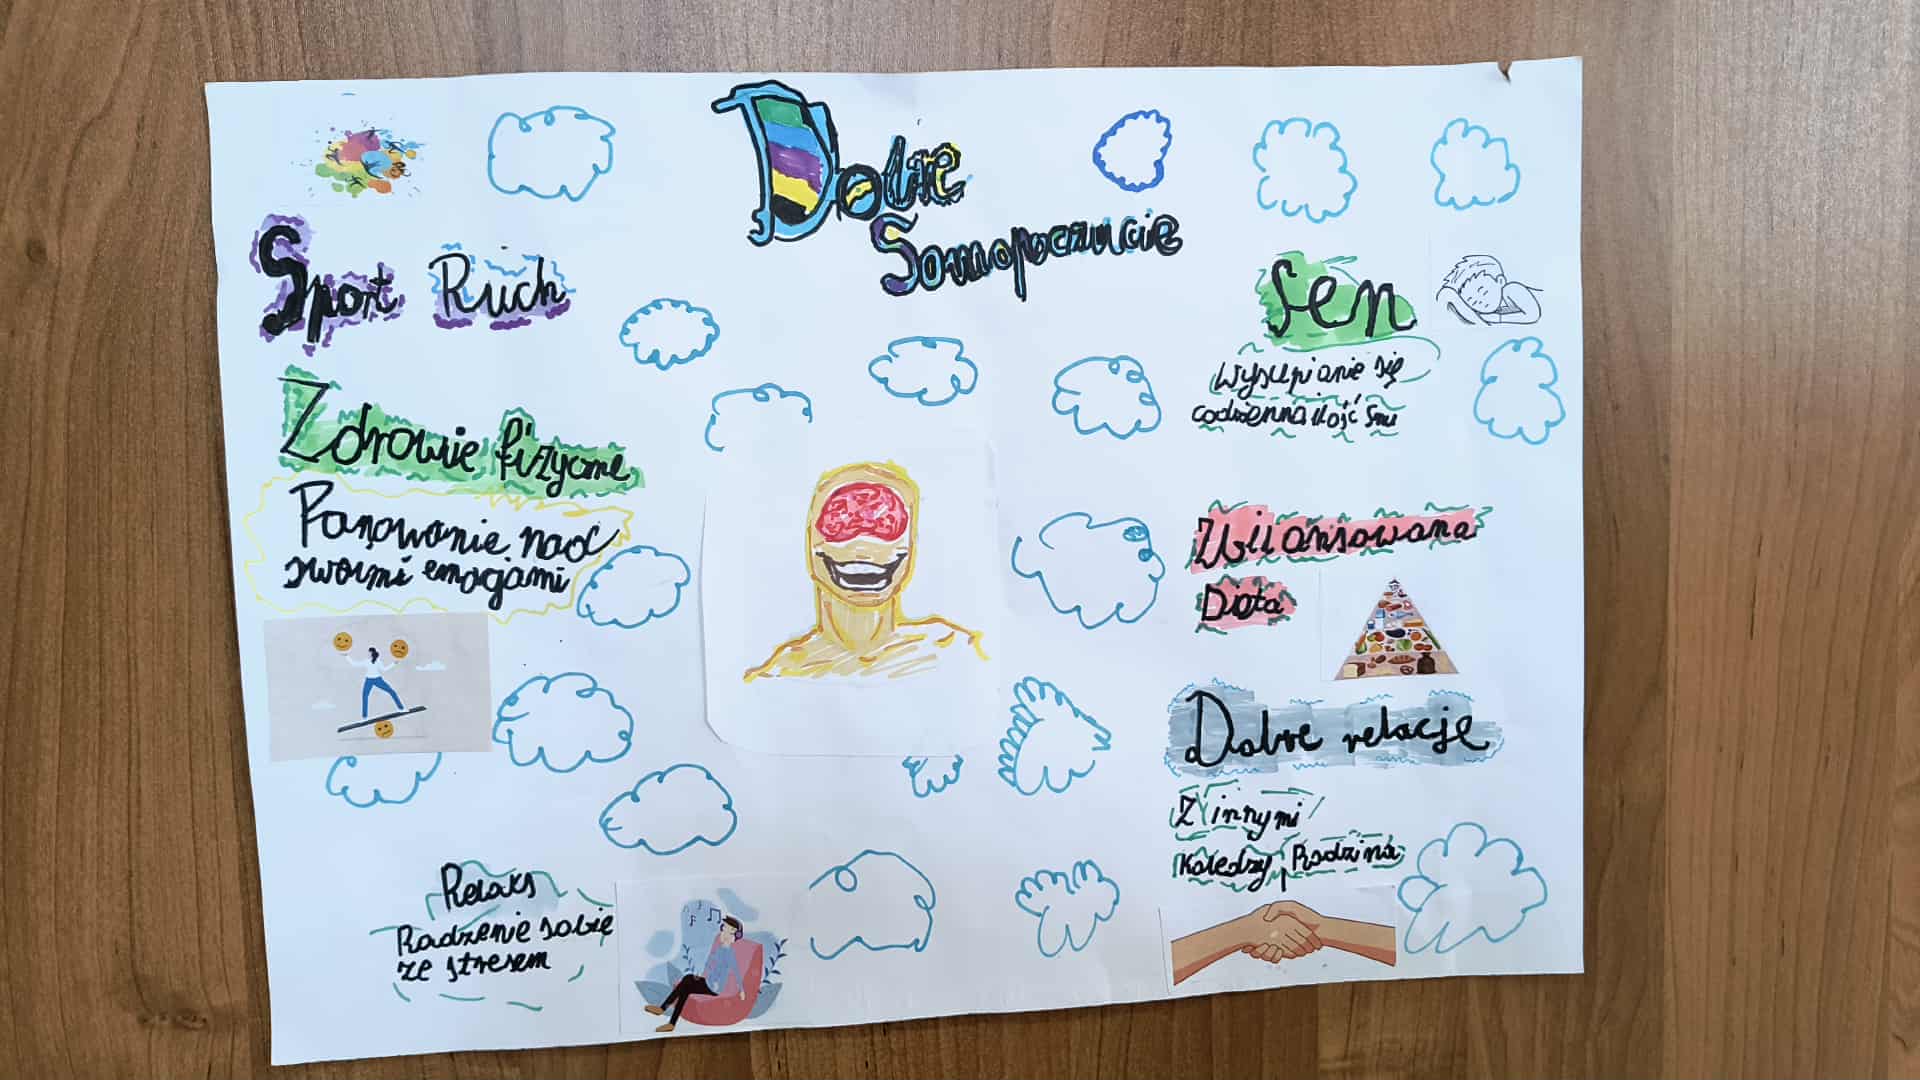 Dobre
Samopoczucie
Sport Ruch
Zdrowie fizyczne
Panowanie nad
swoimi emocjami
Relaks
Radzenie sobie
ze stresem
Sen
Wysypianie się
codzienna ilość snu
Zbilansowana
Dieta
Dobre relacje
Z innymi
Koledzy, Rodzina